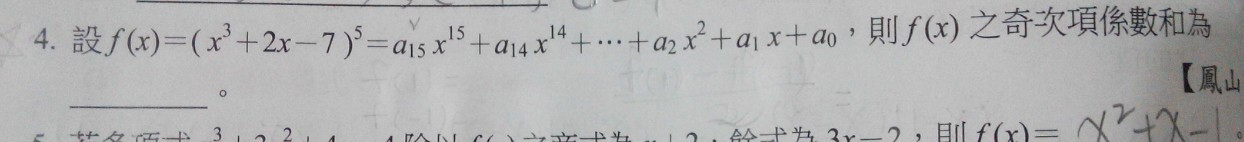 4. 設 f(x)=(x³+2x−7)⁵=a₁₅x¹⁵+a₁₄x¹⁴+⋯+a₂x²+a₁x+a₀，則 f(x) 之奇次項係數和為
【鳳山
________。
3x−2，則 f(x)= x²+x−1。